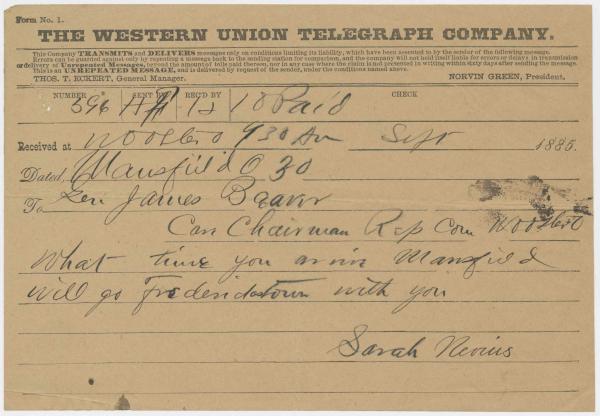 Form No. 1.
THE WESTERN UNION TELEGRAPH COMPANY.
This Company TRANSMITS and DELIVERS messages only on conditions limiting its liability, which have been assented to by the sender of the following message.
Errors can be guarded against only by repeating a message back to the sending station for comparison, and the company will not hold itself liable for errors or delays in transmission
or delivery of Unrepeated Messages, beyond the amount of tolls paid thereon, nor in any case where the claim is not presented in writing within sixty days after sending the message.
This is an UNREPEATED MESSAGE, and is delivered by request of the sender, under the conditions named above.
THOS. T. ECKERT, General Manager. NORVIN GREEN, President.
NUMBER SENT BY REC'D BY CHECK
396 18 Paid
Received at Wooster O 930 Am Sept 1885.
Dated Mansfield O 30
To Gen James Beaver
Care Chairman Rep Com Wooster O
What time you arrive Mansfield
will go Fredericktown with you
Sarah Nevius